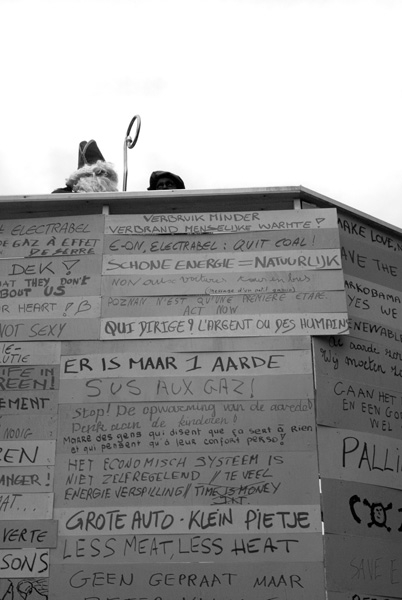 ELECTRABEL
GAZ À EFFET
DE SERRE
DEK!
THAT THEY DON'T
ABOUT US
HEART!
NOT SEXY
LIFE IN
GREEN!
NODIG
VERTE
VERBRUIK MINDER
VERBRAND MENSELIJKE WARMTE!
E-ON, ELECTRABEL: QUIT COAL!
SCHONE ENERGIE = NATUURLIJK
NON aux voitures
POZNAN N'EST QU'UNE PREMIÈRE ETAPE.
ACT NOW
QUI DIRIGE? L'ARGENT OU DES HUMAINS
ER IS MAAR 1 AARDE
SUS AUX GAZ!
Stop! De opwarming van de aarde!
Denk aan de kinderen!
MARRE DES GENS QUI DISENT QUE ÇA SERT À RIEN
ET QUI PENSENT QU'À LEUR CONFORT PERSO!
HET ECONOMISCH SYSTEEM IS
NIET ZELFREGELEND // TE VEEL
ENERGIEVERSPILLING // TIME IS MONEY
GROTE AUTO - KLEIN PIETJE
LESS MEAT, LESS HEAT
GEEN GEPRAAT MAAR
MAKE LOVE, N
SAVE THE
YES WE
RENEWABLE
de aarde
Wij moeten
GAAN HET
EN EEN GO
WEL
PALLI
CO2
SAVE